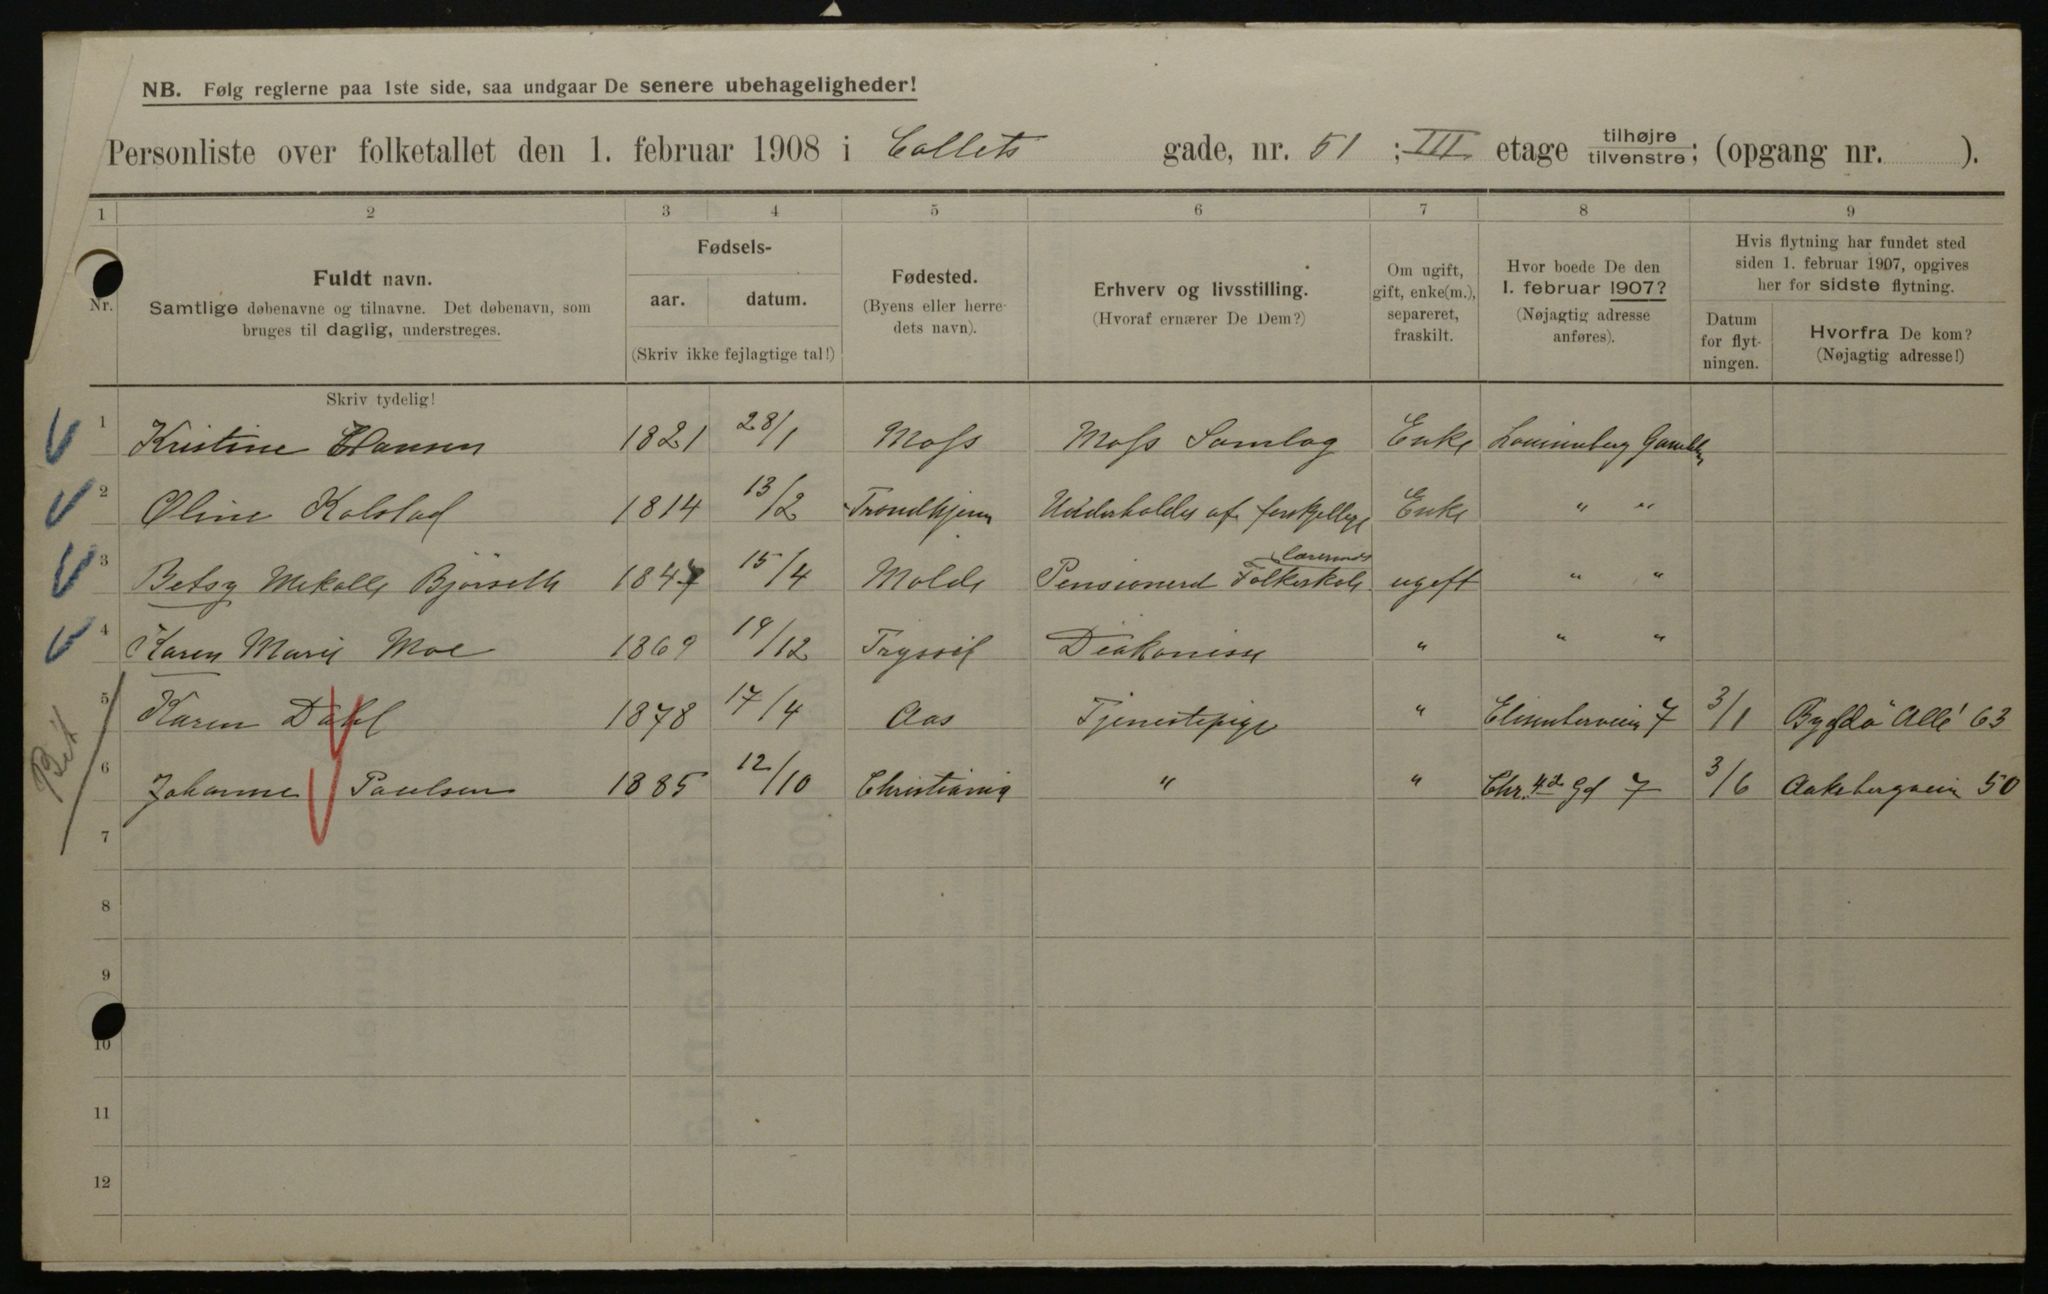 NB. Følg reglerne paa 1ste side, saa undgaar De senere ubehageligheder!
Personliste over folketallet den 1. februar 1908 i Collets gade, nr. 51 ; III etage tilhøjre tilvenstre; (opgang nr. ).
1 2 3 4 5 6 7 8 9
Nr.
Fuldt navn.
Samtlige døbenavne og tilnavne. Det døbenavn, som
bruges til daglig, understreges.
Fødsels-
aar. datum.
(Skriv ikke fejlagtige tal!)
Fødested.
(Byens eller herre-
dets navn).
Erhverv og livsstilling.
(Hvoraf ernærer De Dem?)
Om ugift,
gift, enke(m.),
separeret,
fraskilt.
Hvor boede De den
1. februar 1907?
(Nøjagtig adresse
anføres).
Hvis flytning har fundet sted
siden 1. februar 1907, opgives
her for sidste flytning.
Datum
for flyt-
ningen.
Hvorfra De kom?
(Nøjagtig adresse!)
Skriv tydelig!
1 Kristine Hansen 1821 28/1 Moss Moss Samlag Enke
2 Oline Kolstad 1814 13/2 Trondhjem Underholdes af Enke " "
3 Betsy Bjørseth 1847 15/4 Molde Pensionerd Folkeskole ugift " "
4 Karen Marie Moe 1869 19/12 Trysil Diakonisse " " "
5 Karen Dahl 1878 17/4 Aas Tjenestepige " 7 3/1 Bygdö Allé 63
6 Johanne Paulsen 1885 12/10 Christiania " " Chr. 4de Gd 7 3/6 Aakebergveien 50
7
8
9
10
11
12